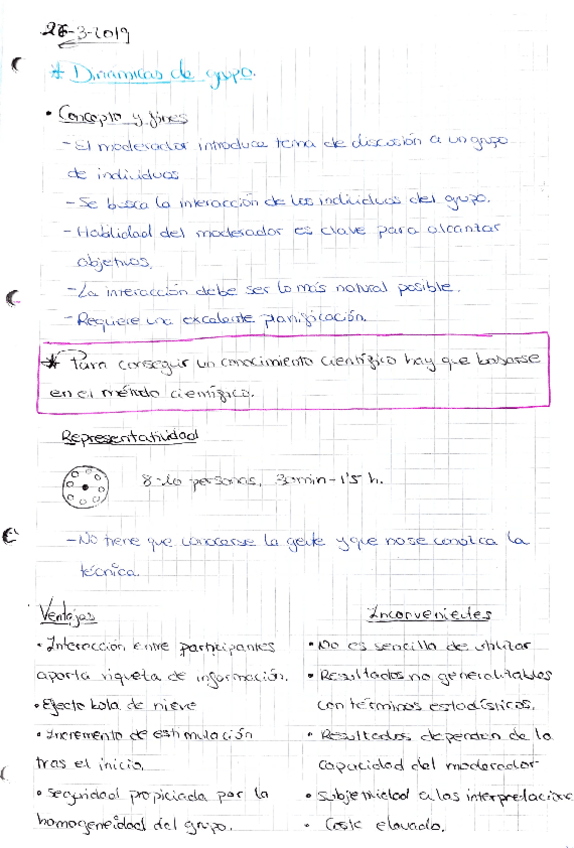 26-3-2019
* Dinámicas de grupo.
• Concepto y fines
- El moderador introduce tema de discusión a un grupo
de individuos
- Se busca la interacción de los individuos del grupo.
- Habilidad del moderador es clave para alcanzar
objetivos.
- La interacción debe ser lo más natural posible.
- Requiere una excelente planificación.
* Para conseguir un conocimiento científico hay que basarse
en el método científico.
Representatividad
8-10 personas, 30min-1'5 h.
- No tiene que conocerse la gente y que no se conozca la
técnica.
Ventajas
• Interacción entre participantes
aporta riqueza de información.
• Efecto bola de nieve
• Incremento de estimulación
tras el inicio.
• Seguridad propiciada por la
homogeneidad del grupo.
Inconvenientes
• No es sencilla de utilizar
• Resultados no generalizables
con términos estadísticos.
• Resultados dependen de la
capacidad del moderador
• Subjetividad a las interpretacione
• Coste elevado.